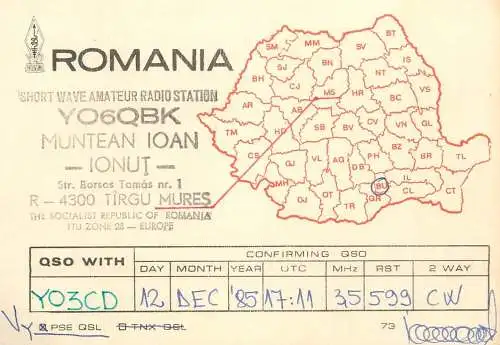 ROMANIA
SHORT WAVE AMATEUR RADIO STATION
YO6QBK
MUNTEAN IOAN
— IONUȚ —
Str. Borsos Tamás nr. 1
R — 4300 TÎRGU MUREȘ
THE SOCIALIST REPUBLIC OF ROMANIA
ITU ZONE 28 — EUROPE
SM MM BT
SJ BN SV
BH CJ MS NT IS
AR AB HR BC VS
TM HD SB BV CV VN GL
CS GJ VL AG PH BZ BR TL
MH DB IL
DJ OT TR GR BU CL CT
QSO WITH CONFIRMING QSO
DAY MONTH YEAR UTC MHz RST 2 WAY
YO3CD 12 DEC '85 17:11 3,5 599 CW
PSE QSL TNX QSL 73